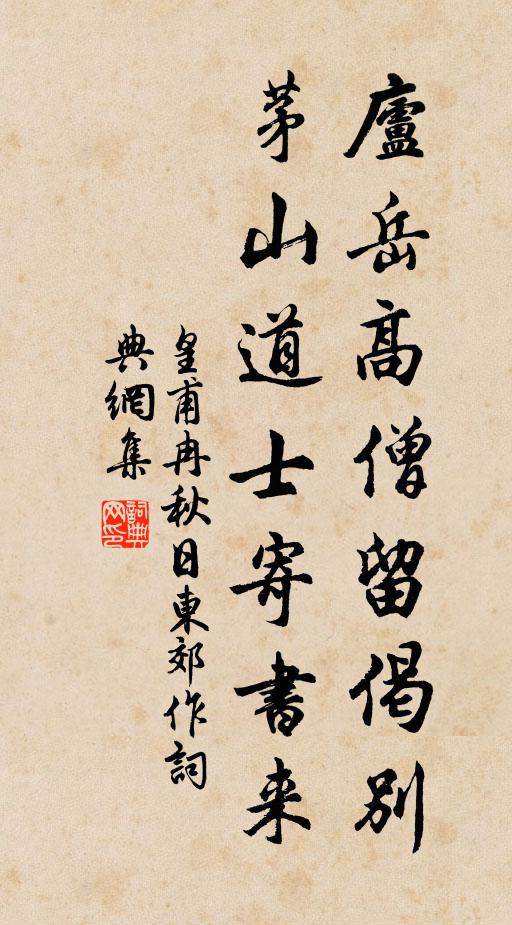 廬岳高僧留偈別
茅山道士寄書来
皇甫冉秋日東郊作詞
典網集
詞典網印